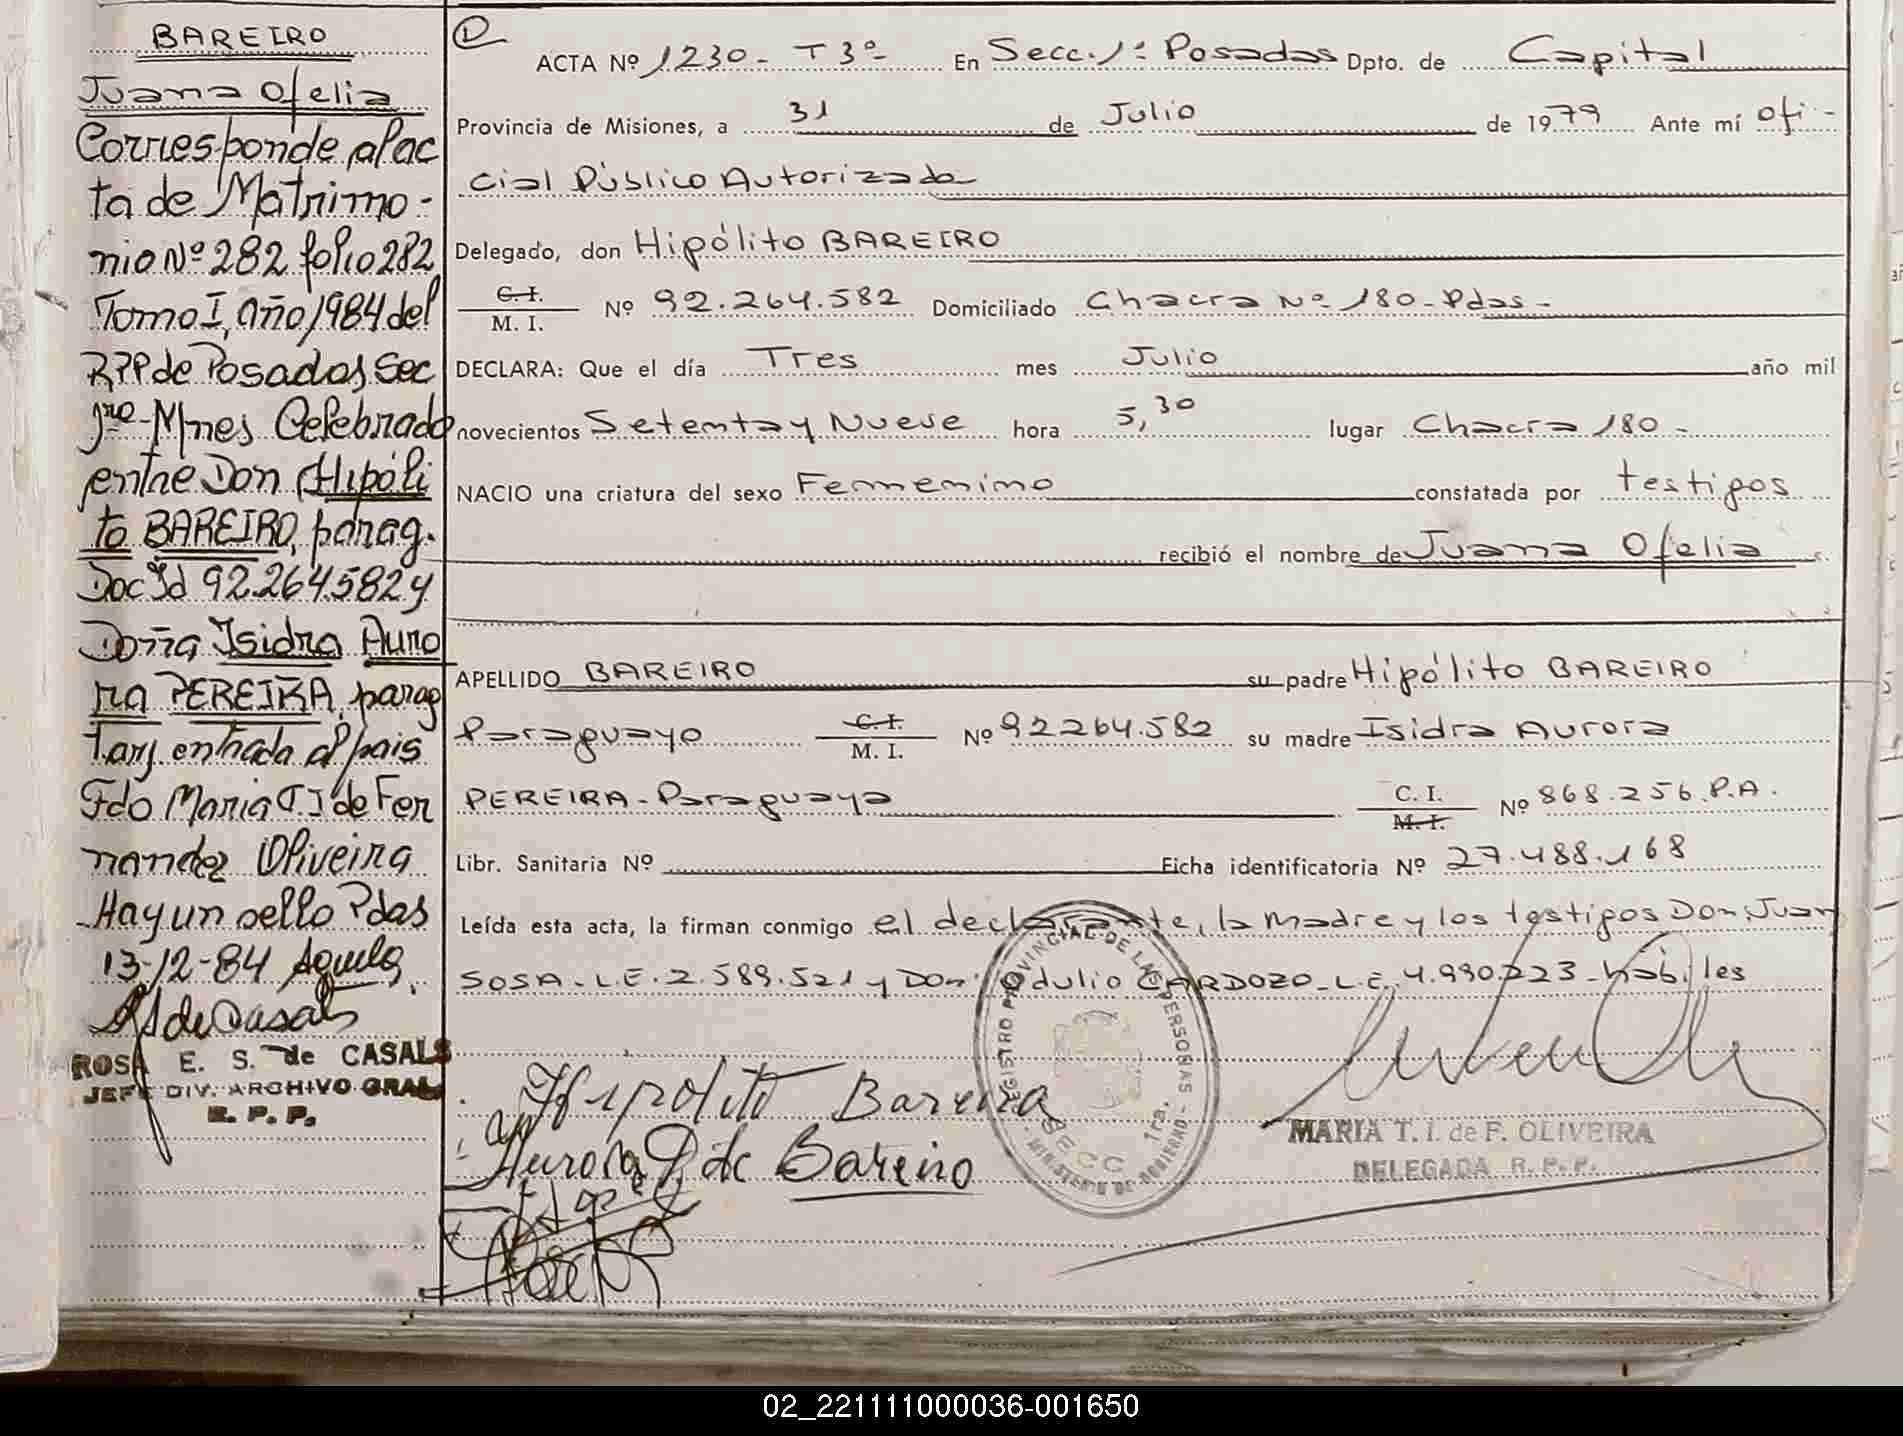 BAREIRO
Juana Ofelia
Corresponde al ac
ta de Matrimo-
nio Nº 282 folio 282
Tomo I, año 1984 del
RPP de Posadas Sec
1ra- Mnes Celebrado
entre Don Hipóli
to BAREIRO, parag.
Doc Id 92.264.582 y
Doña Isidra Auro
ra PEREIRA, parag
Tarj entrada al pais
Fdo Maria T. I de Fer
nandez Oliveira
Hay un sello Pdas
13-12-84
de Casals
ROSA E. S. de CASALS
JEFE DIV. ARCHIVO GRAL
R. P. P.
ACTA Nº 1230- T 3º- En Secc. 1ª Posadas Dpto. de Capital
Provincia de Misiones, a 31 de Julio de 1979 Ante mí ofi-
cial Público Autorizado
Delegado, don Hipólito BAREIRO
C. I.
M. I. Nº 92.264.582 Domiciliado Chacra Nº 180- Pdas-
DECLARA: Que el día Tres mes Julio año mil
novecientos Setenta y Nueve hora 5,30 lugar Chacra 180-
NACIO una criatura del sexo Femenino constatada por testigos
recibió el nombre de Juana Ofelia
APELLIDO BAREIRO su padre Hipólito BAREIRO
Paraguayo C. I. M. I. Nº 92264.582 su madre Isidra Aurora
PEREIRA- Paraguaya C. I. M. I. Nº 868.256.P.A.
Libr. Sanitaria Nº Ficha identificatoria Nº 27.488.168
Leída esta acta, la firman conmigo el declarante, la madre y los testigos Don Juan
SOSA- L.E. 2.589.521 y Don Odulio CARDOZO- L.E. 4.990.223- habiles
Hipolito Bareiro
Aurora P. de Bareiro
REGISTRO PROVINCIAL DE LAS PERSONAS
- MINISTERIO DE GOBIERNO -
SECC. 1ra.
MARIA T. I. de F. OLIVEIRA
DELEGADA R. P. P.
02_221111000036-001650